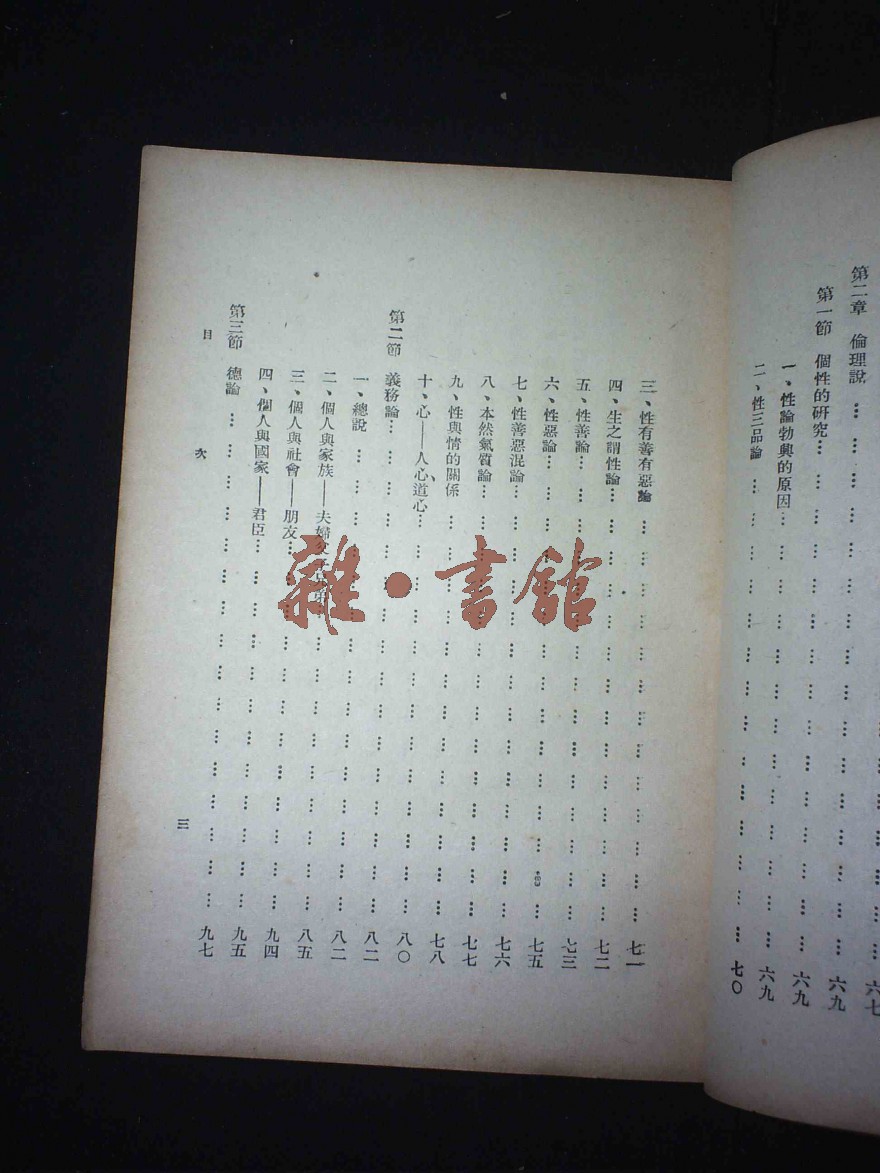 六七
第二章 倫理說 … 六九
第一節 個性的研究 … 六九
一、性論勃興的原因 … 六九
二、性三品論 … 七〇
三、性有善有惡論 … 七一
四、生之謂性論 … 七二
五、性善論 … 七三
六、性惡論 … 七五
七、性善惡混論 … 七六
八、本然氣質論 … 七七
九、性與情的關係 … 七八
十、心——人心道心 … 八〇
第二節 義務論 … 八二
一、總說 … 八二
二、個人與家族——夫婦 … 八五
三、個人與社會——朋友 … 九四
四、個人與國家——君臣 … 九五
第三節 德論 … 九七
目 次 三
雜·書館